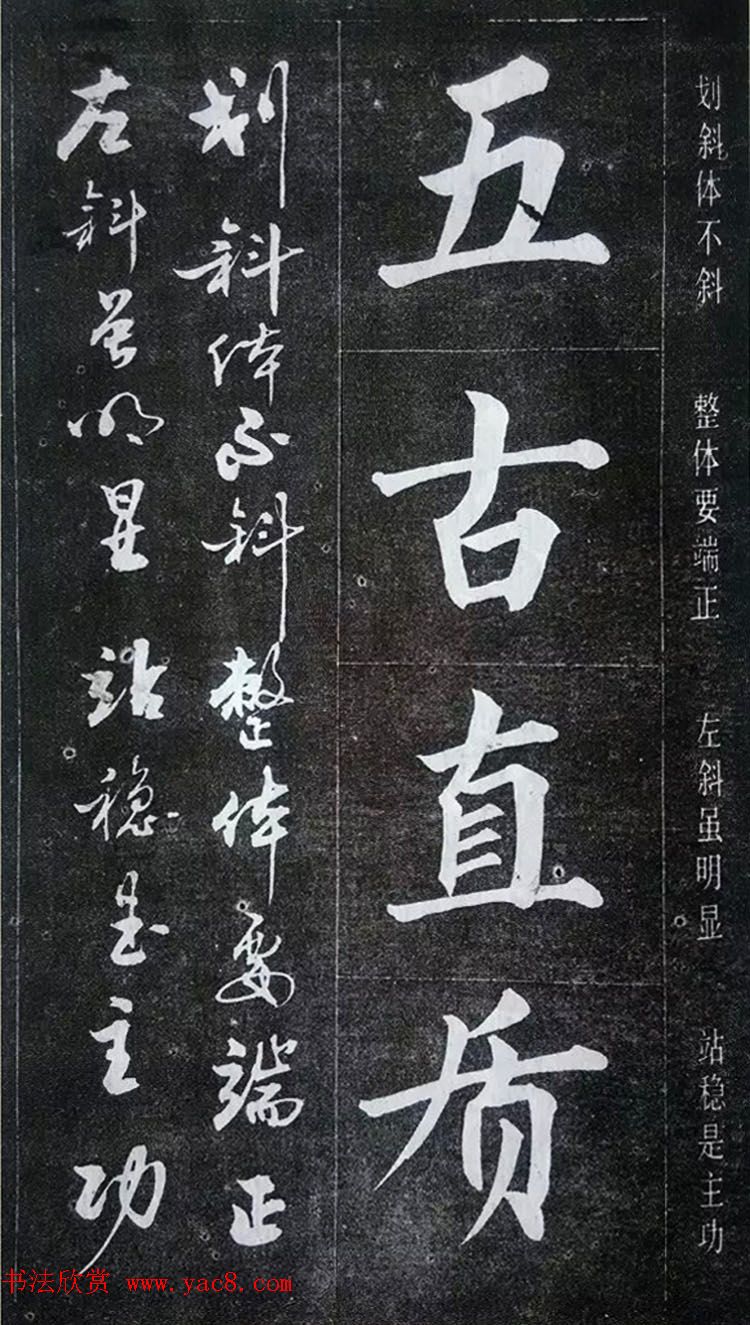 划斜体不斜 整体要端正 左斜虽明显 站稳是主功
五古直质
划斜体不斜整体要端正
左斜虽明显站稳是主功
书法欣赏 www.yac8.com